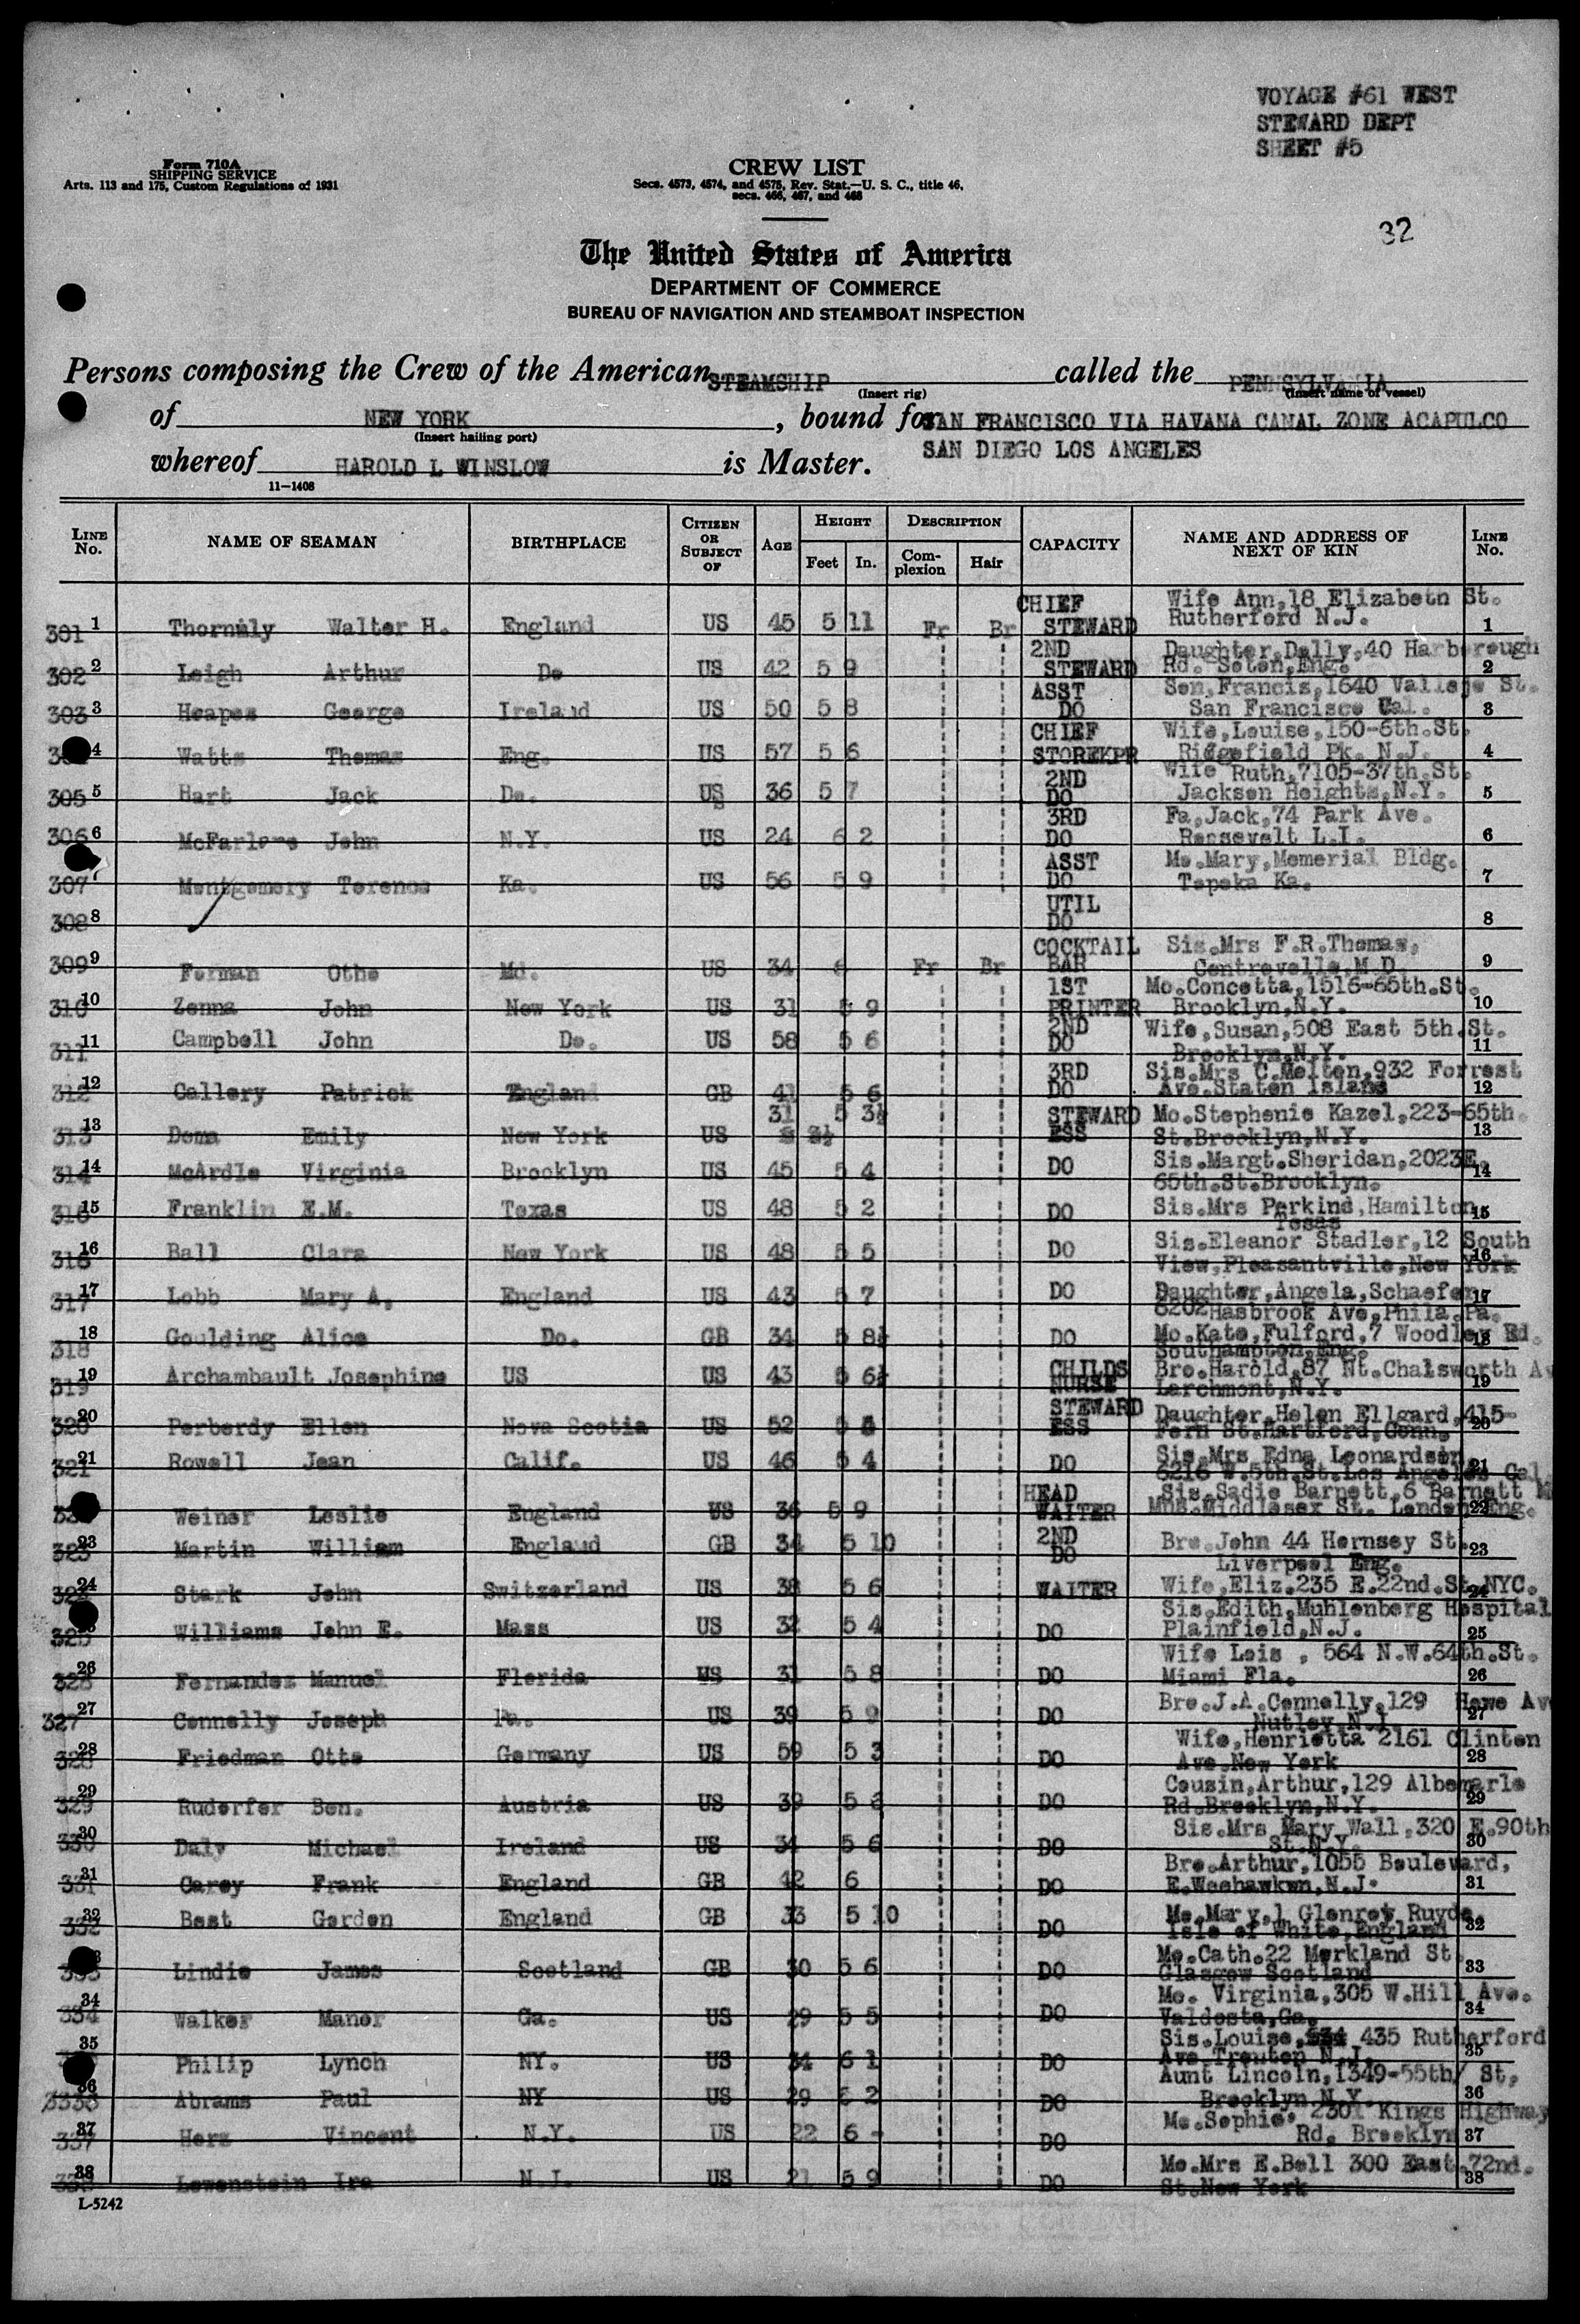 VOYAGE #61 WEST
STEWARD DEPT
SHEET #5
Form 710A
SHIPPING SERVICE
Arts. 113 and 175, Custom Regulations of 1931
CREW LIST
Secs. 4573, 4574, and 4575, Rev. Stat.—U. S. C., title 46,
secs. 466, 467, and 468
32
The United States of America
DEPARTMENT OF COMMERCE
BUREAU OF NAVIGATION AND STEAMBOAT INSPECTION
Persons composing the Crew of the American STEAMSHIP called the PENNSYLVANIA
(Insert rig) (Insert name of vessel)
of NEW YORK, bound for SAN FRANCISCO VIA HAVANA CANAL ZONE ACAPULCO
(Insert hailing port)
SAN DIEGO LOS ANGELES
whereof HAROLD L WINSLOW is Master.
11—1408
LINE No. NAME OF SEAMAN BIRTHPLACE CITIZEN OR SUBJECT OF AGE HEIGHT Feet In. DESCRIPTION Complexion Hair CAPACITY NAME AND ADDRESS OF NEXT OF KIN LINE No.
301 1 Thornily Walter H. England US 45 5 11 Fr Br CHIEF STEWARD Wife Ann,18 Elizabeth St. Rutherford N.J. 1
302 2 Leigh Arthur Do US 42 5 9 2ND STEWARD Daughter,Dolly,40 Harborough Rd. Soton,Eng. 2
303 3 Heapes George Ireland US 50 5 8 ASST DO Son,Francis,1640 Vallejo St. San Francisco Cal. 3
4 Watts Thomas Eng. US 57 5 6 CHIEF STOREKPR Wife,Louise,150-6th.St. Ridgefield Pk. N.J. 4
305 5 Hart Jack Do. US 36 5 7 2ND DO Wife Ruth,7105-37th.St. Jackson Heights,N.Y. 5
306 6 McFarlane John N.Y. US 24 6 2 3RD DO Fa,Jack,74 Park Ave. Roosevelt L.I. 6
307 Montgomery Terence Ka. US 56 5 9 ASST DO Mo.Mary,Memorial Bldg. Topeka Ka. 7
308 8 UTIL DO 8
309 9 Forman Otho Md. US 34 6 Fr Br COCKTAIL BAR Sis.Mrs F.R.Thomas, Centrevelle,M.D. 9
310 10 Zenna John New York US 31 5 9 1ST PRINTER Mo.Concetta,1516-65th.St. Brooklyn,N.Y. 10
311 11 Campbell John Do. US 58 5 6 2ND DO Wife,Susan,508 East 5th.St. Brooklyn,N.Y. 11
312 12 Callery Patrick England GB 41 5 6 3RD DO Sis.Mrs C.Molten,932 Forrest Ave.Staten Island 12
313 13 Dema Emily New York US 31 5 3½ STEWARD ESS Mo.Stephenie Kazel,223-65th. St.Brooklyn,N.Y. 13
314 14 McArdle Virginia Brooklyn US 45 5 4 DO Sis.Margt.Sheridan,2023E. 65th.St.Brooklyn. 14
315 15 Franklin E.M. Texas US 48 5 2 DO Sis.Mrs Perkind,Hamilton, Texas 15
316 16 Ball Clara New York US 48 5 5 DO Sis.Eleanor Stadler,12 South View,Pleasantville,New York 16
317 17 Lobb Mary A. England US 43 5 7 DO Daughter,Angela,Schaefer, 6202 Hasbrook Ave,Phila.Pa. 17
318 18 Goulding Alice Do. GB 34 5 8½ DO Mo.Kate,Fulford,7 Woodley Rd. Southampton,Eng. 18
319 19 Archambault Josephine US US 43 5 6½ CHILDS NURSE Bro.Harold,87 Nt.Chalsworth Av Larchmont,N.Y. 19
320 20 Perberdy Ellen Nova Scotia US 52 5 STEWARD ESS Daughter,Helen Ellgard,415- Fern St.Hartford,Conn. 20
321 21 Rowell Jean Calif. US 46 5 4 DO Sis.Mrs Edna Leonardson, 6216 W.5th.St.Los Angeles Cal 21
Weiner Leslie England US 36 5 9 HEAD WAITER Sis.Sadie Barnett,6 Barnett Mns.Middlesex St. London Eng. 22
323 23 Martin William England GB 34 5 10 2ND DO Bro.John 44 Hornsey St. Liverpool Eng. 23
324 24 Stark John Switzerland US 38 5 6 WAITER Wife,Eliz.235 E.22nd.St.NYC. 24
325 Williams John E. Mass US 32 5 4 DO Sis.Edith,Muhlenberg Hospital Plainfield,N.J. 25
326 26 Fernandez Manuel Florida US 31 5 8 DO Wife Lois , 564 N.W.64th.St. Miami Fla. 26
327 27 Connelly Joseph Pa. US 39 5 9 DO Bro.J.A.Connelly,129 Howe Av Nutley,N.J 27
328 28 Friedman Otto Germany US 59 5 3 DO Wife,Henrietta 2161 Clinton Ave.New York 28
329 29 Ruderfer Ben. Austria US 39 5 6 DO Cousin,Arthur,129 Albemarle Rd.Brooklyn,N.Y. 29
330 30 Daly Michael Ireland US 34 5 6 DO Sis.Mrs Mary Wall,320 E.90th St.N.Y. 30
331 31 Carey Frank England GB 42 6 DO Bro.Arthur,1055 Boulevard, E.Weehawken,N.J. 31
332 32 Best Gordon England GB 33 5 10 DO Mo.Mary,1 Glenroy Ruyde, Isle of White,England 32
333 Lindie James Scotland GB 30 5 6 DO Mo.Cath.22 Merkland St. Glasgow Scotland 33
334 34 Walker Manor Ga. US 29 5 5 DO Mo. Virginia,305 W.Hill Ave. Valdosta,Ga. 34
35 Philip Lynch NY. US 34 6 1 DO Sis.Louise, 435 Rutherford Ave.Trenton N.J. 35
36 Abrams Paul NY US 29 6 2 DO Aunt Lincoln,1349-55th/ St, Brooklyn N.Y. 36
337 37 Herz Vincent N.Y. US 22 6 - DO Mo.Sophie, 2301 Kings Highway Rd. Brooklyn 37
338 38 Lowenstein Ira N.J. US 21 5 9 DO Mo.Mrs E.Bell 300 East.72nd. St.New York 38
L-5242